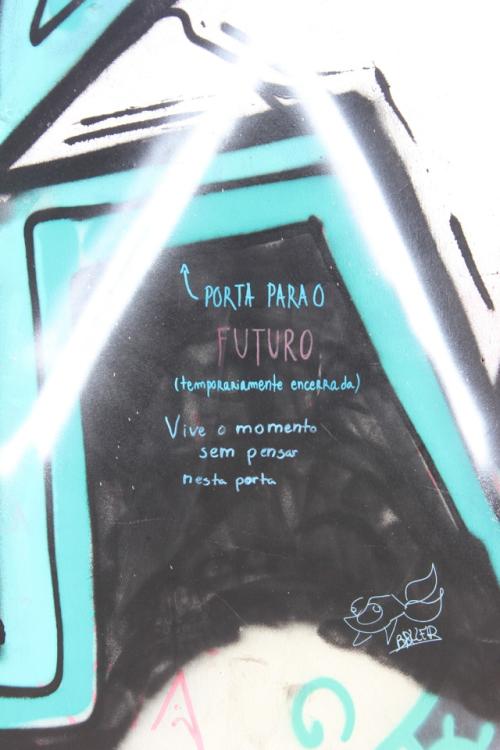 PORTA PARA O
FUTURO
(temporariamente encerrada)
Vive o momento
sem pensar
nesta porta